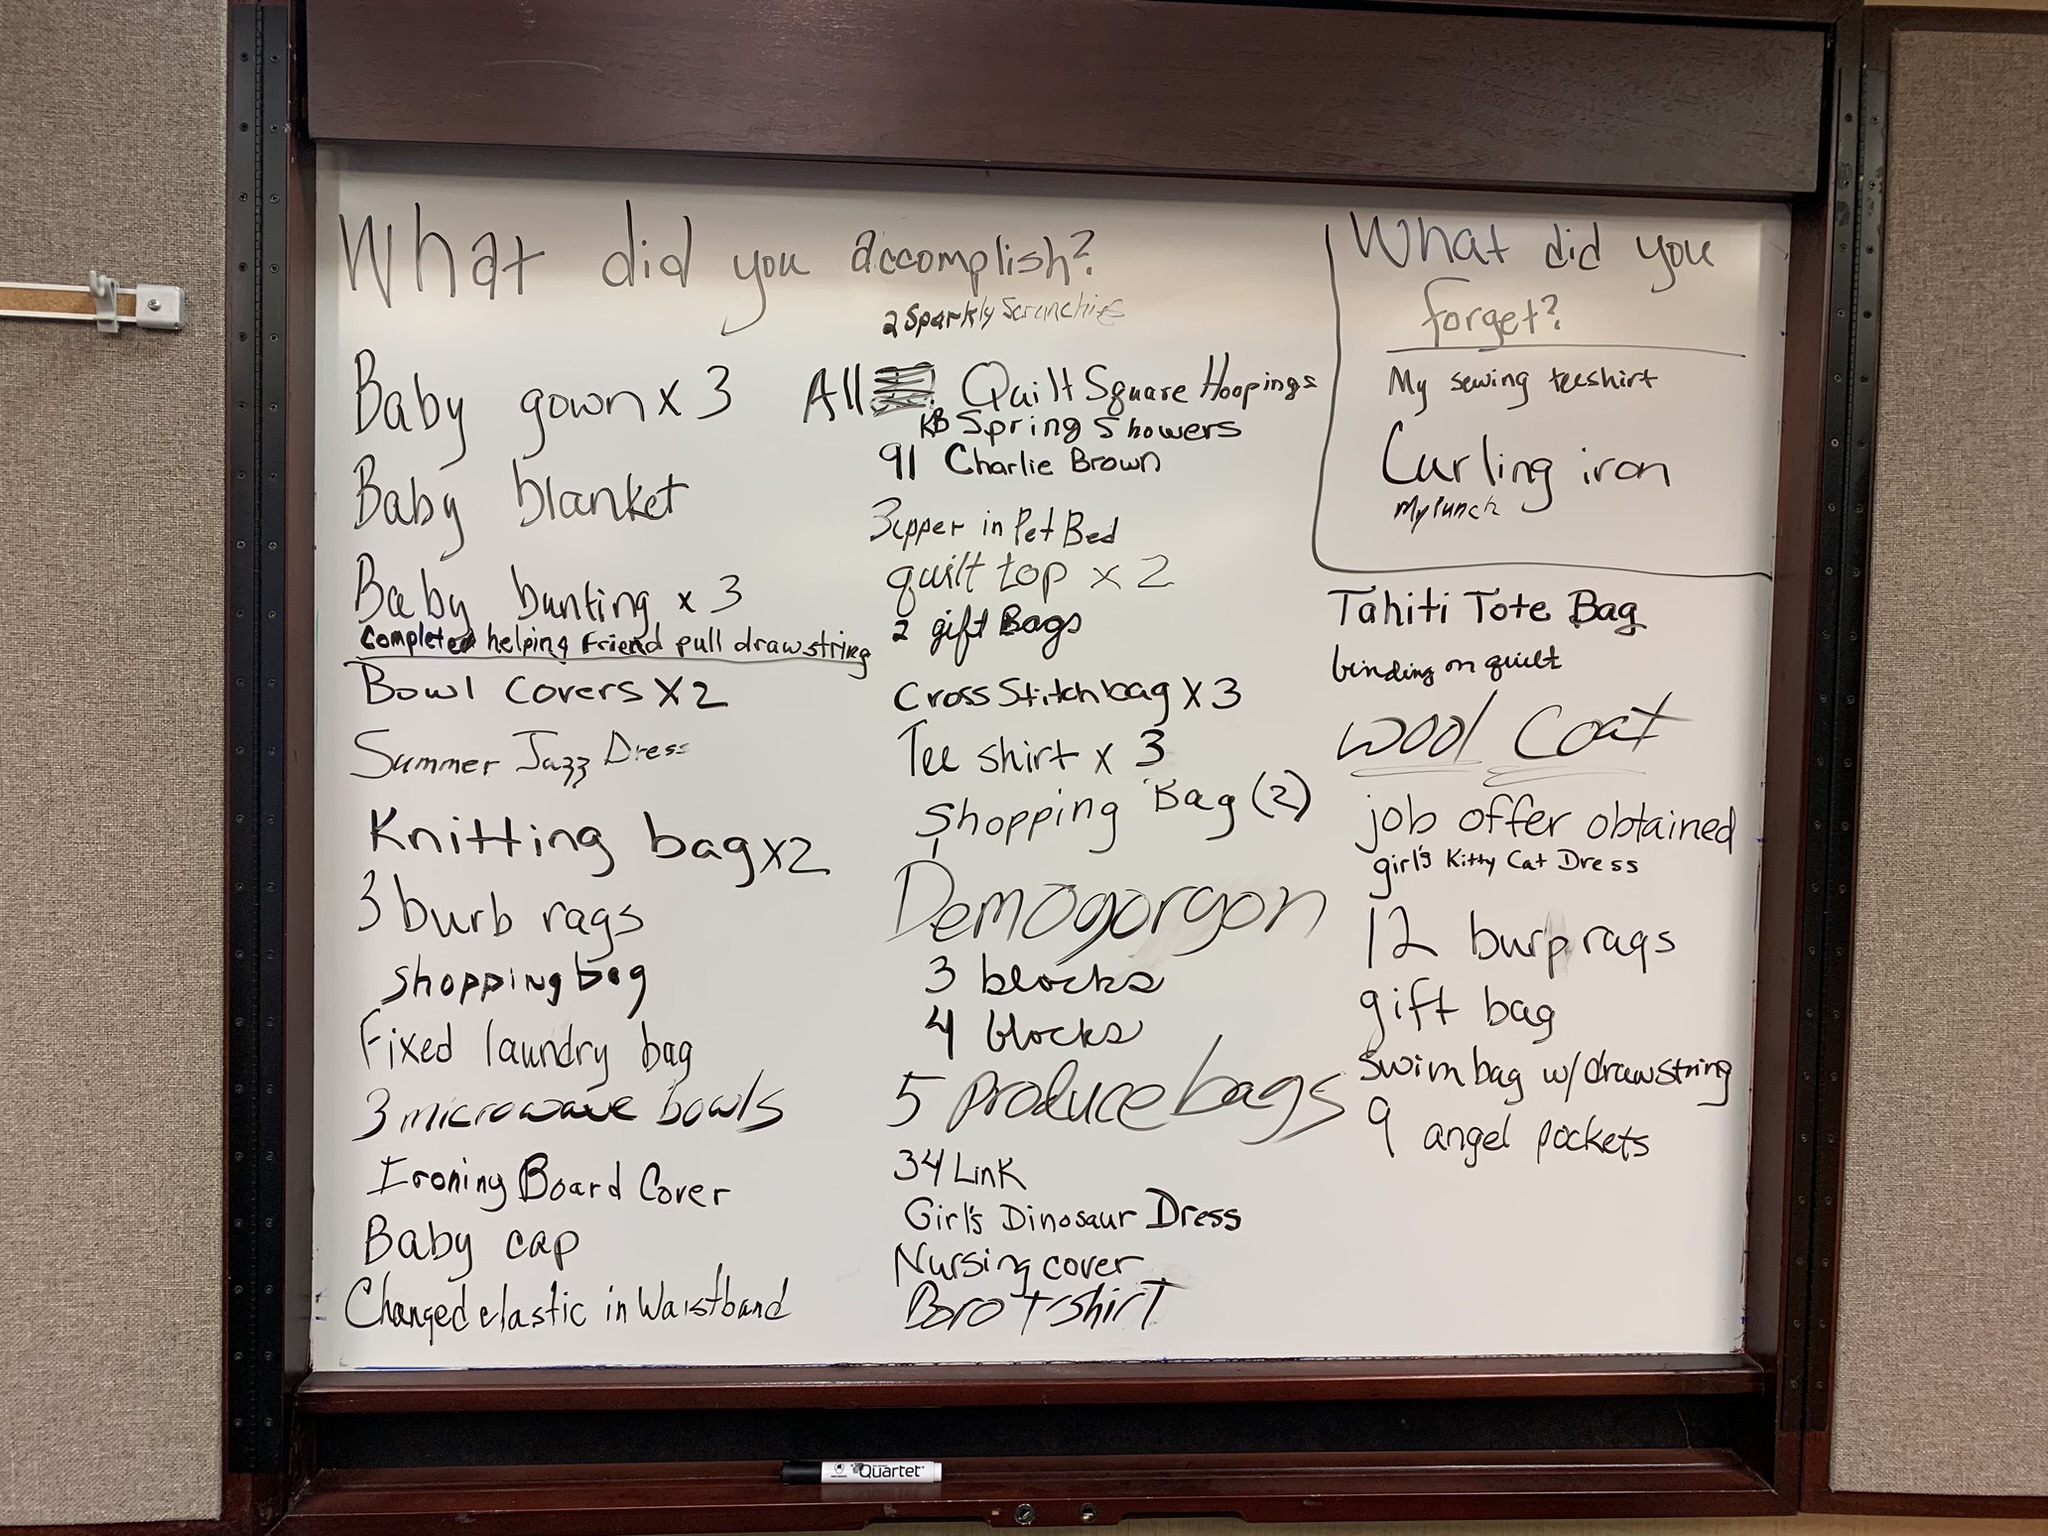 What did you accomplish?
2 Sparkly Scrunchies
Baby gown x 3
Baby blanket
Baby bunting x 3
Completed helping Friend pull drawstring
Bowl covers x 2
Summer Jazz Dress
Knitting bag x2
3 burb rags
shopping bag
Fixed laundry bag
3 microwave bowls
Ironing Board Cover
Baby cap
Changed elastic in Waistband
All Quilt Square Hoopings
KB Spring Showers
91 Charlie Brown
Zipper in Pet Bed
quilt top x 2
2 gift Bags
Cross Stitch bag x 3
Tee shirt x 3
Shopping Bag (2)
Demogorgon
3 blocks
4 blocks
5 produce bags
34 Link
Girl's Dinosaur Dress
Nursing cover
Boro T-shirt
What did you
forget?
My sewing teeshirt
Curling iron
My lunch
Tahiti Tote Bag
binding on quilt
Wool Coat
job offer obtained
girl's Kitty Cat Dress
12 burp rags
gift bag
swim bag w/ drawstring
9 angel pockets
Quartet